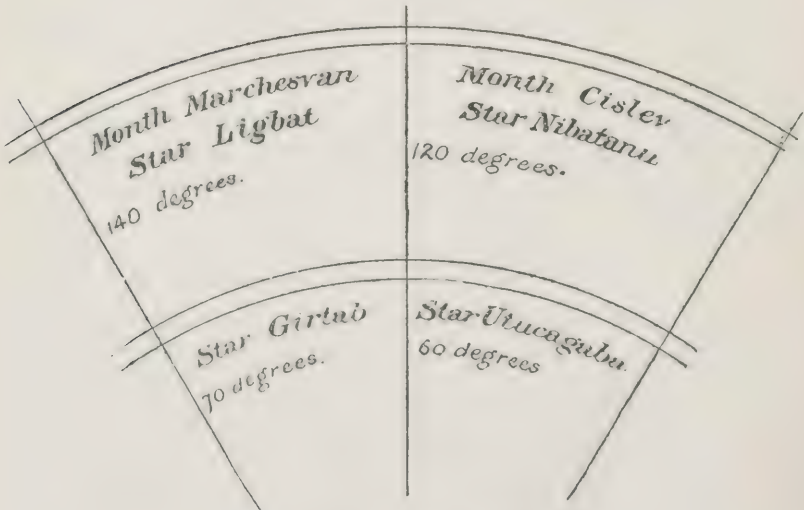 Month Marchesvan
Star Ligbat
140 degrees.
Month Cislev
Star Nibatanu
120 degrees.
Star Girtab
70 degrees.
Star Utucagaba
60 degrees